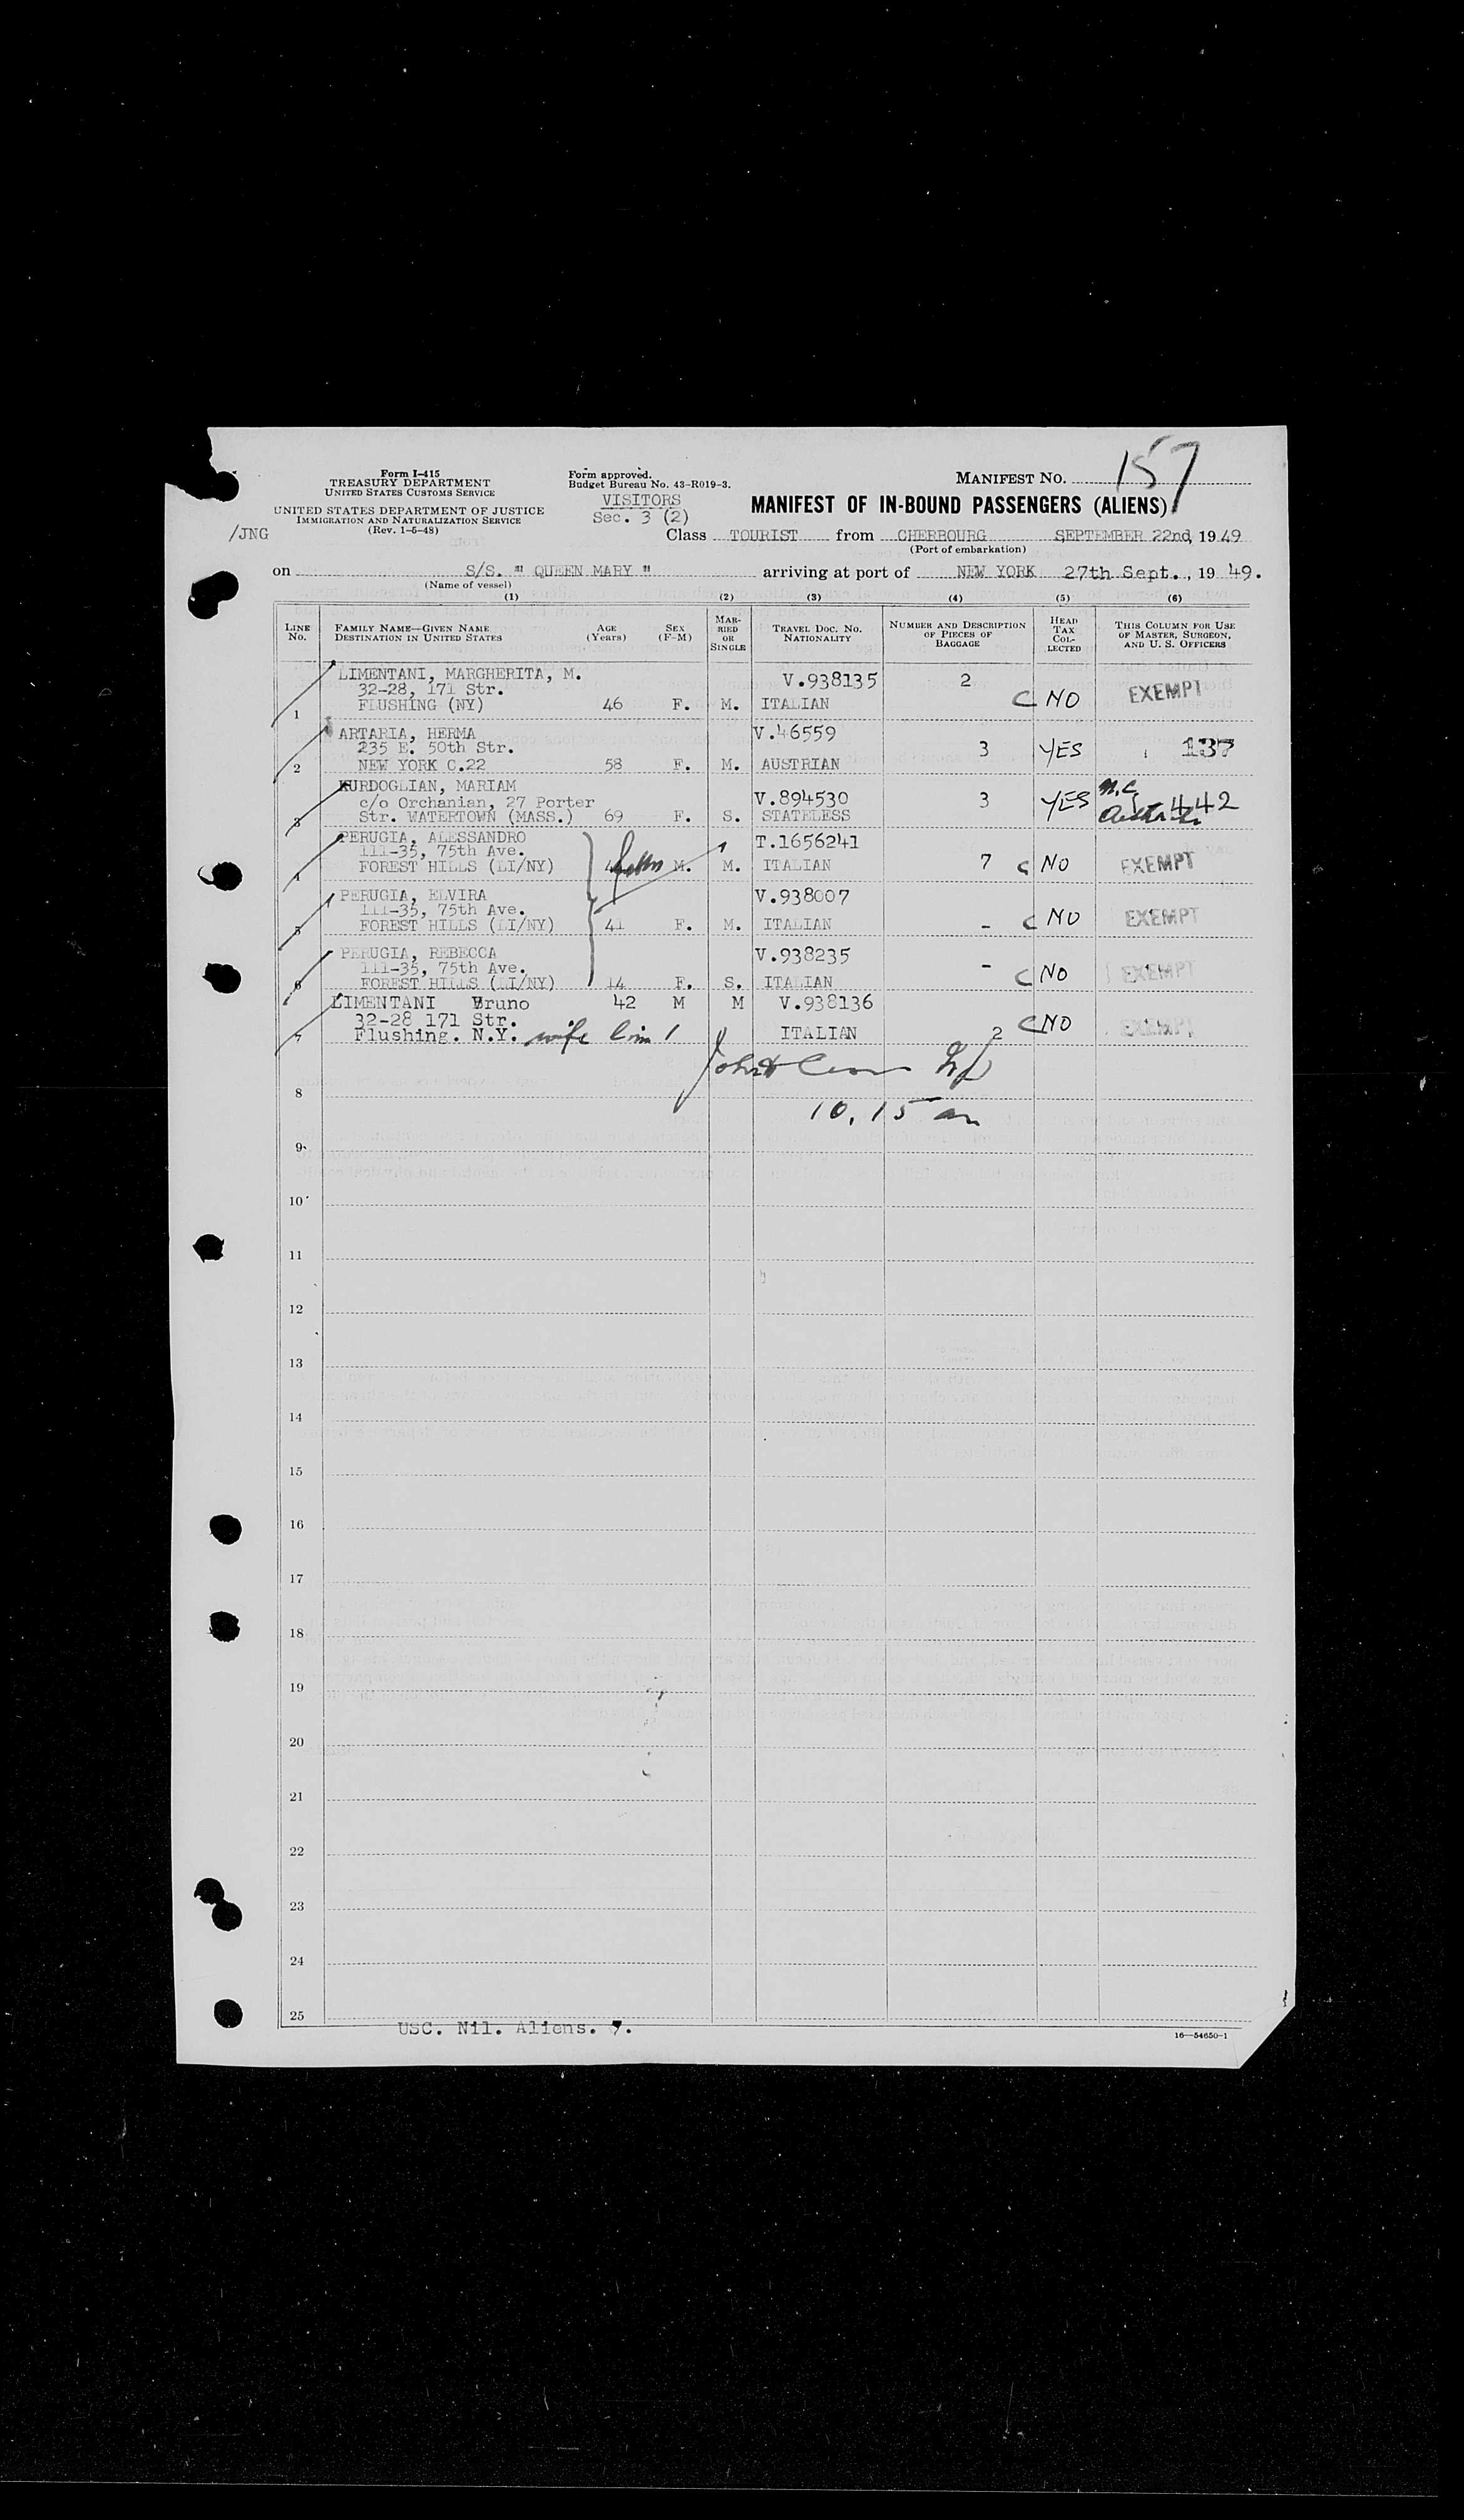 Form I-415
TREASURY DEPARTMENT
UNITED STATES CUSTOMS SERVICE
UNITED STATES DEPARTMENT OF JUSTICE
IMMIGRATION AND NATURALIZATION SERVICE
(Rev. 1-5-48)
/JNG
Form approved.
Budget Bureau No. 43-R019-3.
VISITORS
Sec. 3 (2)
MANIFEST NO. 157
MANIFEST OF IN-BOUND PASSENGERS (ALIENS)
Class TOURIST from CHERBOURG SEPTEMBER 22nd, 1949
(Port of embarkation)
on S/S. " QUEEN MARY " arriving at port of NEW YORK 27th Sept., 19 49.
(Name of vessel)
(1) (2) (3) (4) (5) (6)
LINE NO. FAMILY NAME—GIVEN NAME DESTINATION IN UNITED STATES AGE (Years) SEX (F-M) MARRIED OR SINGLE TRAVEL DOC. NO. NATIONALITY NUMBER AND DESCRIPTION OF PIECES OF BAGGAGE HEAD TAX COLLECTED THIS COLUMN FOR USE OF MASTER, SURGEON, AND U. S. OFFICERS
LIMENTANI, MARGHERITA, M. V.938135 2
32-28, 171 Str. C NO EXEMPT
1 FLUSHING (NY) 46 F. M. ITALIAN
ARTARIA, HERMA V.46559
235 E. 50th Str. 3 YES 137
2 NEW YORK C.22 58 F. M. AUSTRIAN
KURDOGLIAN, MARIAM
c/o Orchanian, 27 Porter V.894530 3 YES 442
3 Str. WATERTOWN (MASS.) 69 F. S. STATELESS
PERUGIA, ALESSANDRO T.1656241
111-35, 75th Ave.
4 FOREST HILLS (LI/NY) M. M. ITALIAN 7 C NO EXEMPT
PERUGIA, ELVIRA V.938007
111-35, 75th Ave.
5 FOREST HILLS (LI/NY) 41 F. M. ITALIAN - C NO EXEMPT
PERUGIA, REBECCA V.938235
111-35, 75th Ave. -
6 FOREST HILLS (LI/NY) 14 F. S. ITALIAN C NO EXEMPT
LIMENTANI Bruno 42 M M V.938136
32-28 171 Str. C NO EXEMPT
7 Flushing. N.Y. wife line 1 ITALIAN 2
8
10.15 am
9
10
11
12
13
14
15
16
17
18
19
20
21
22
23
24
25
USC. Nil. Aliens. 7.
16—54650-1